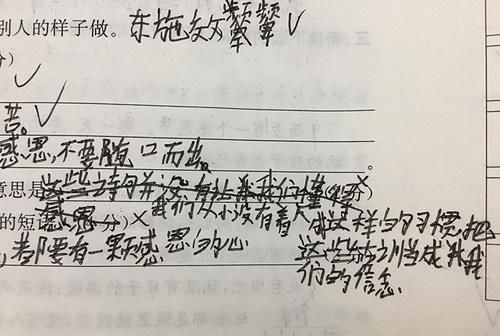 别人的样子做。东施效颦 ✓
苦。✓
感恩,不要随口而出。
意思是这些诗句并没有让我我们懂得
的短 感恩 分)× 我们从小没有着 成这样的习惯,把
,都要有一颗感恩的心 这些 当成我我
们的信念